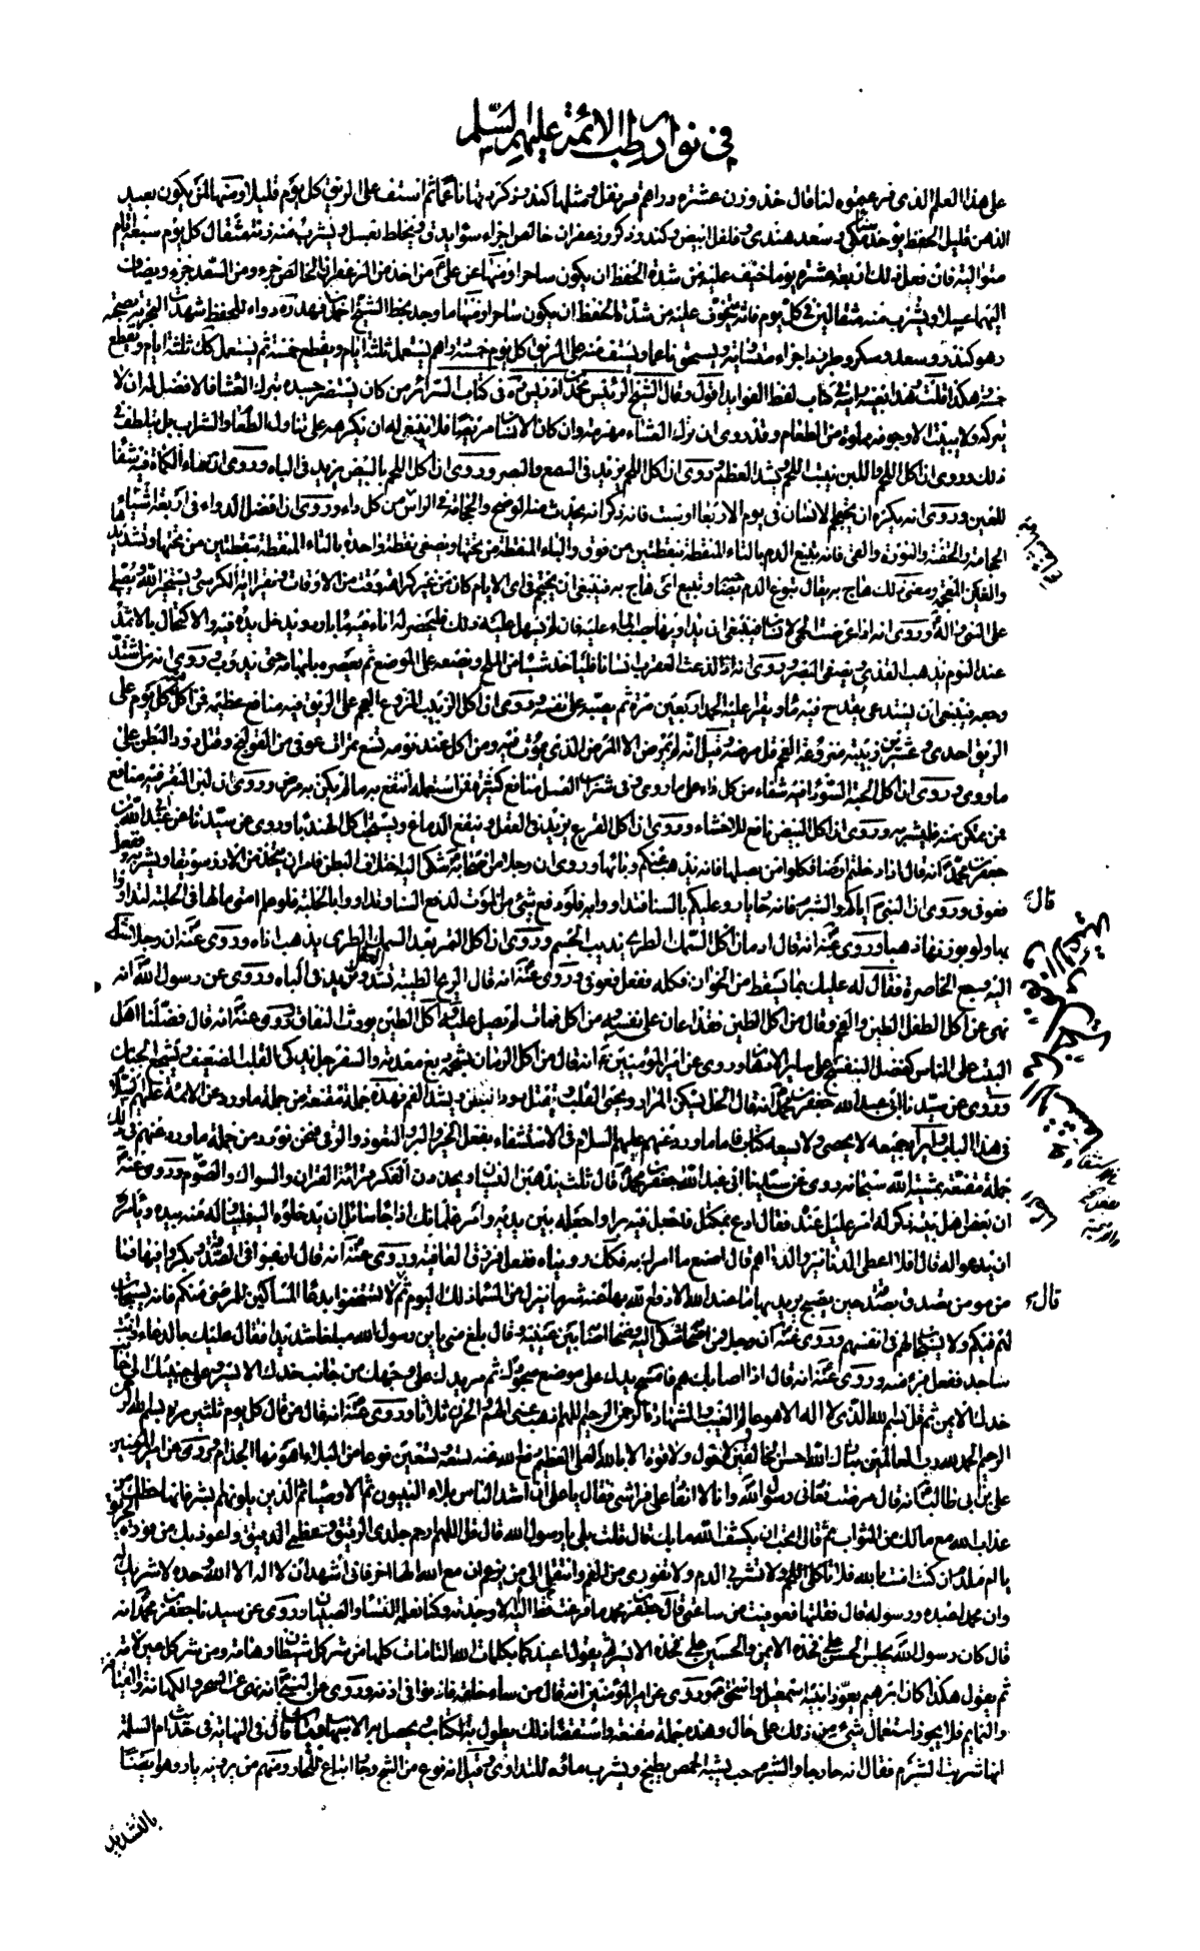 في نوادر طب الائمة عليهم السلام
على هذا العلم الذي فرعيتموه لنا قال خذ وزن عشرة دراهم قرنفل ومثلها كندر ذكر دقها ناعما ثم استف على الريق كل يوم قليلا ومنها لمن يكون بعيد
الذهن قليل الحفظ يؤخذ سنا مكي وسعد هندي وفلفل ابيض وكندر ذكر وزعفران خالص اجزاء سواء يدق ويخلط بعسل ويشرب منه زنة مثقال كل يوم سبعة ايام
متوالية فان فعل ذلك اربعة عشر يوما خيف عليه من شدة الحفظ ان يكون ساحرا ومنها عن علي من اخذ من الزعفران الخالص جزء ومن السعد جزء ويضاف
اليهما عسلا ويشرب منه مثقالين في كل يوم فانه يتخوف عليه من شدة الحفظ ان يكون ساحرا ومنها ما وجد بخط الشيخ احمد بن فهد ره دواء للحفظ شهدت التجربة بصحته
وهو كندر وسعد وسكر طبرزد اجزاء متساوية ويسحق ناعما ويستف منه على الريق كل يوم خمسة دراهم يستعمل ثلثة ايام ويقطع خمسة ثم يستعمل كك ثلثة ايام ويقطع
خمسة هكذا قلت هذا بعينه رايته في كتاب لفظ الفوايد اقول وقال الشيخ الرئيس محمد بن ادريس ره في كتاب السرائر من كان يستضر جسده بترك العشاء فالافضل له ان لا
يتركه ولا يبيت الا وجوفه مملوة من الطعام وقد روى ان ترك العشاء مهرمة وان كان الانسان مريضا فلا ينبغي له ان يكرهه على تناول الطعام والشراب بل يتلطف في
ذلك وروى ان اكل اللحم واللبن ينبت اللحم ويشد العظم وروى ان اكل اللحم يزيد في السمع والبصر وروى ان اكل اللحم بالبيض يزيد في الباه وروى ان ماء الكماة فيه شفاء
للعين وروى انه يكره ان يحتجم الانسان في يوم الاربعاء او سبت فانه ذكر انه يحدث منه الوضح والحجامة في الراس من كل داء وروى ان افضل الدواء في اربعة اشياء
الحجامة والحقنة والنورة والقى فان تبيغ الدم بالتاء المنقطة بنقطتين من فوق والباء المنقطة من تحتها ويعني نقطة واحدة بالتاء المنقطة بنقطتين من تحتها وتشديدها
والغين المعجمة ومعنى ذلك هاج به يقال تبوغ الدم بصاحبه وتبيغ اى هاج به فينبغي ان يحتجم في اى الايام كان من غير كراهة وقت من الاوقات ويقرا اية الكرسى ويستخير الله ويصلى
على النبي واله وروى انه اذا عرضت الحمى لانسان فينبغي ان يداويها بصب الماء عليه فان لم يسهل عليه ذلك فليحضر له اناء فيه ماء بارد ويدخل يده فيه والاكتحال بالاثمد
عند النوم يذهب القذى ويصفى البصر وروى انه اذا لدغت العقرب انسانا فليأخذ شيئا من الملح ويضعه على الموضع ثم يعصره بابهامه حتى يذوب وروى انه من اشتد
وجعه فينبغي ان يستدعى بقدح فيه ماء ويقرا عليه الحمد اربعين مرة ثم يصبه على نفسه وروى ان اكل الزبيب المنزوع العجم على الريق فيه منافع عظيمة فمن اكل منه كل يوم على
الريق احدى وعشرين زبيبة منزوعة العجم قل مرضه وقيل انه لم يمرض الا المرض الذي يموت فيه ومن اكل عند نومه تسع تمرات عوفي من القولنج وقتل دود البطن على
ما روى وروى ان اكل الحبة السوداء فيه شفاء من كل داء على ما روى وفي شراب العسل منافع كثيرة فمن استعمله انتفع به ما لم يكن به مرض وروى ان لبن البقر فيه منافع
فمن تمكن منه فليشربه وروى ان اكل البيض نافع للاحشاء وروى ان اكل القرع يزيد في العقل وينفع الدماغ ويستحب اكل الهندباء وروى عن سيدنا ابي عبد الله
جعفر بن محمد انه قال اذا دخلتم ارضا فكلوا من بصلها فانه يذهب عنكم وبائها وروى ان رجلا من اصحابه شكى اليه اختلاف البطن فامره ان يتخذ من الارز سويقا ويشربه ففعل
فعوفى وروى ان النبي قال اياكم والشبرم فانه حار يار وعليكم بالسنا فتداووا به فلو دفع شئ من الموت لدفع السنا وتداووا بالحلبة فلو علم امتى ما لها في الحلبة لتداووا
بها ولو بوزنها ذهبا وروى عنه انه قال ادمان اكل السمك الطرى يذيب الجسم وروى ان اكل التمر بعد السمك الطرى يذهب اذاه وروى عنه ان رجلا شكى
اليه وجع الخاصرة فقال له عليك بما يسقط من الخوان فكله ففعل فعوفى وروى عنه انه قال الريح الطيبة تشد العقل وتزيد في الباه وروى عن رسول الله انه
نهى عن اكل الطفل الطين والفحم وقال من اكل الطين فقد اعان على نفسه ومن اكله فمات لم يصل عليه واكل الطين يورث النفاق وروى عنه انه قال فضلنا اهل
البيت على الناس كفضل البنفسج على ساير الادهان وروى عن امير المؤمنين ع انه قال من اكل الرمان بشحمه دبغ معدته والسفرجل يذكى القلب الضعيف ويشجع الجبان
وروى عن سيدنا ابي عبد الله جعفر بن محمد انه قال الخل يسكن المرار ويحيى القلب ويقتل دود البطن ويشد الفم فهذه جملة مقنعة من جملة ما ورد عن الائمة عليهم السلام
في هذا الباب وايراد جميعه لا يحصى ولا يسعه كتاب فاما ما ورد عنهم عليهم السلام في الاستشفاء بفعل الخير والبر والتعوذ والرقى فنحن نورد من جملة ما ورد عنهم في ذلك
جملة مقنعة بمشية الله سبحانه روى عن سيدنا ابي عبد الله جعفر بن محمد قال ثلث يذهبن النسيان ويحددن الفكر قرائة القران والسواك والصوم وروى عنه
ان بعض اهل بيته ذكر له امر عليل عنده فقال ادع بمكتل فاجعل فيه برا واجعله بين يديه وامر غلمانك اذا جاء سائل ان يدخلوه اليه فيناوله منه بيده ويامره
ان يدعو له قال افلا اعطى الدنانير والدراهم قال اصنع ما امرك به فكك رويناه ففعل فرزق العافية وروى عنه انه قال ارغبوا في الصدقة وبكروا فيها فما
من مؤمن يتصدق بصدقة حين يصبح يريد بها ما عند الله الا دفع الله بها عنه شر ما ينزل من السماء ذلك اليوم ثم قال لا تستخفوا بدعاء المساكين للمرضى منكم فانه يستجاب
لهم فيكم ولا يستجاب لهم في انفسهم وروى عنه ان رجلا من اصحابه شكى اليه وضحا اصابه بين عينيه وقال بلغ منى يابن رسول الله مبلغا شديدا فقال عليك بالدعاء وانت
ساجد ففعل فبرء منه وروى عنه انه قال اذا اصابك هم فامسح يدك على موضع سجودك ثم مر يدك على وجهك من جانب خدك الايسر وعلى جبينك الى جانب
خدك الايمن ثم قل بسم الله الذي لا اله الا هو عالم الغيب والشهادة الرحمن الرحيم اللهم اذهب عنى الهم والحزن ثلاثا وروى عنه انه قال من قال كل يوم ثلثين مرة بسم الله الرحمن
الرحيم الحمد لله رب العالمين تبارك الله احسن الخالقين لا حول ولا قوة الا بالله العلي العظيم دفع الله عنه تسعة وتسعين نوعا من البلاء اهونها الجذام وروى عن امير المؤمنين
على بن ابي طالب انه قال مرضت فعادنى رسول الله وانا لا اتقار على فراشى فقال يا على ان اشد الناس بلاء النبيون ثم الاوصياء ثم الذين يلونهم ابشر فانها حظك من
عذاب الله مع ما لك من الثواب ثم قال اتحب ان يكشف الله ما بك قال قلت بلى يا رسول الله قال قل اللهم ارحم جلدى الرقيق وعظمى الدقيق واعوذ بك من فورة الحريق
يا ام ملدم ان كنت امنت بالله فلا تاكلى اللحم ولا تشربى الدم ولا تفورى من الفم وانتقلى الى من يزعم ان مع الله الها اخر فانى اشهد ان لا اله الا الله وحده لا شريك له
وان محمدا عبده ورسوله قال فقلتها فعوفيت من ساعتى قال جعفر بن محمد ما فزعت قط اليه الا وجدته وكنا نعلمه النساء والصبيان وروى عن سيدنا جعفر بن محمد انه
قال كان رسول الله يجلس الحسن على فخذه الايمن والحسين على فخذه الايسر ثم يقول اعيذكما بكلمات الله التامات كلها من شر كل شيطان وهامة ومن شر كل عين لامة
ثم يقول هكذا كان ابرهيم يعوذ ابنيه اسمعيل واسحق وروى عن امير المؤمنين انه قال من ساء خلقه فاذنوا في اذنه وروى عن النبي انه نهى عن السحر والكهانة والقيافة
والتمايم فلا يجوز استعمال شئ من ذلك على حال وهذه جملة مقنعة واستقصاء ذلك يطول به الكتاب ويحصل به الاسهاب قال في النهاية في حديث ام سلمة
انها شربت الشبرم فقال انه حار جار والشبرم حب يشبه الحمص يطبخ ويشرب ماؤه للتداوى وقيل انه نوع من الشيح وجار اتباع للحار ومنهم من يرويه يار وهو ايضا
بالتشديد
قال
قال